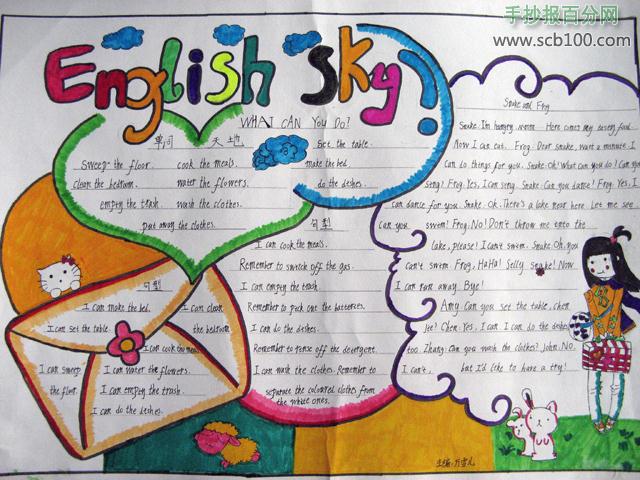 手抄报百分网
www.scb100.com
English Sky!
WHAT CAN YOU DO?
单词 天地
sweep the floor. cook the meals.
clean the bedroom. water the flowers.
empty the trash. wash the clothes.
put away the clothes.
set the table.
make the bed.
do the dishes.
句型
I can cook the meals.
Remember to switch off the gas.
I can empty the trash.
Remember to pick out the batteries.
I can do the dishes.
Remember to rinse off the detergent.
I can wash the clothes. Remember to
separate the coloured clothes from
the white ones.
句型
I can make the bed.
I can set the table.
I can sweep
the floor.
I can clean
the bedroom
I can cook the meals
I can water the flowers.
I can empty the trash.
I can do the dishes.
Snake and Frog
Snake: I'm hungry. Here comes my
Now I can eat. Frog: Dear snake, wait a minute. I
can do things for you. Snake: Oh! What can you do? Can you
seng? Frog: Yes, I can seng. Snake: Can you dance? Frog: Yes, I
can dance for you. Snake: Ok. There's a lake near here. Let me see
can you swem? Frog: No! Don't throw me into the
lake, please! I can't swem. Snake: Oh, you
can't swem. Frog: HaHa! Selly snake! Now
I can run away. Bye!
Amy: Can you set the table, chen
Jee? Chen: Yes, I can. I can do the dishes
too. Zhang: Can you wash the clothes? John: No,
I can't, but I'd like to have a try!
主编: